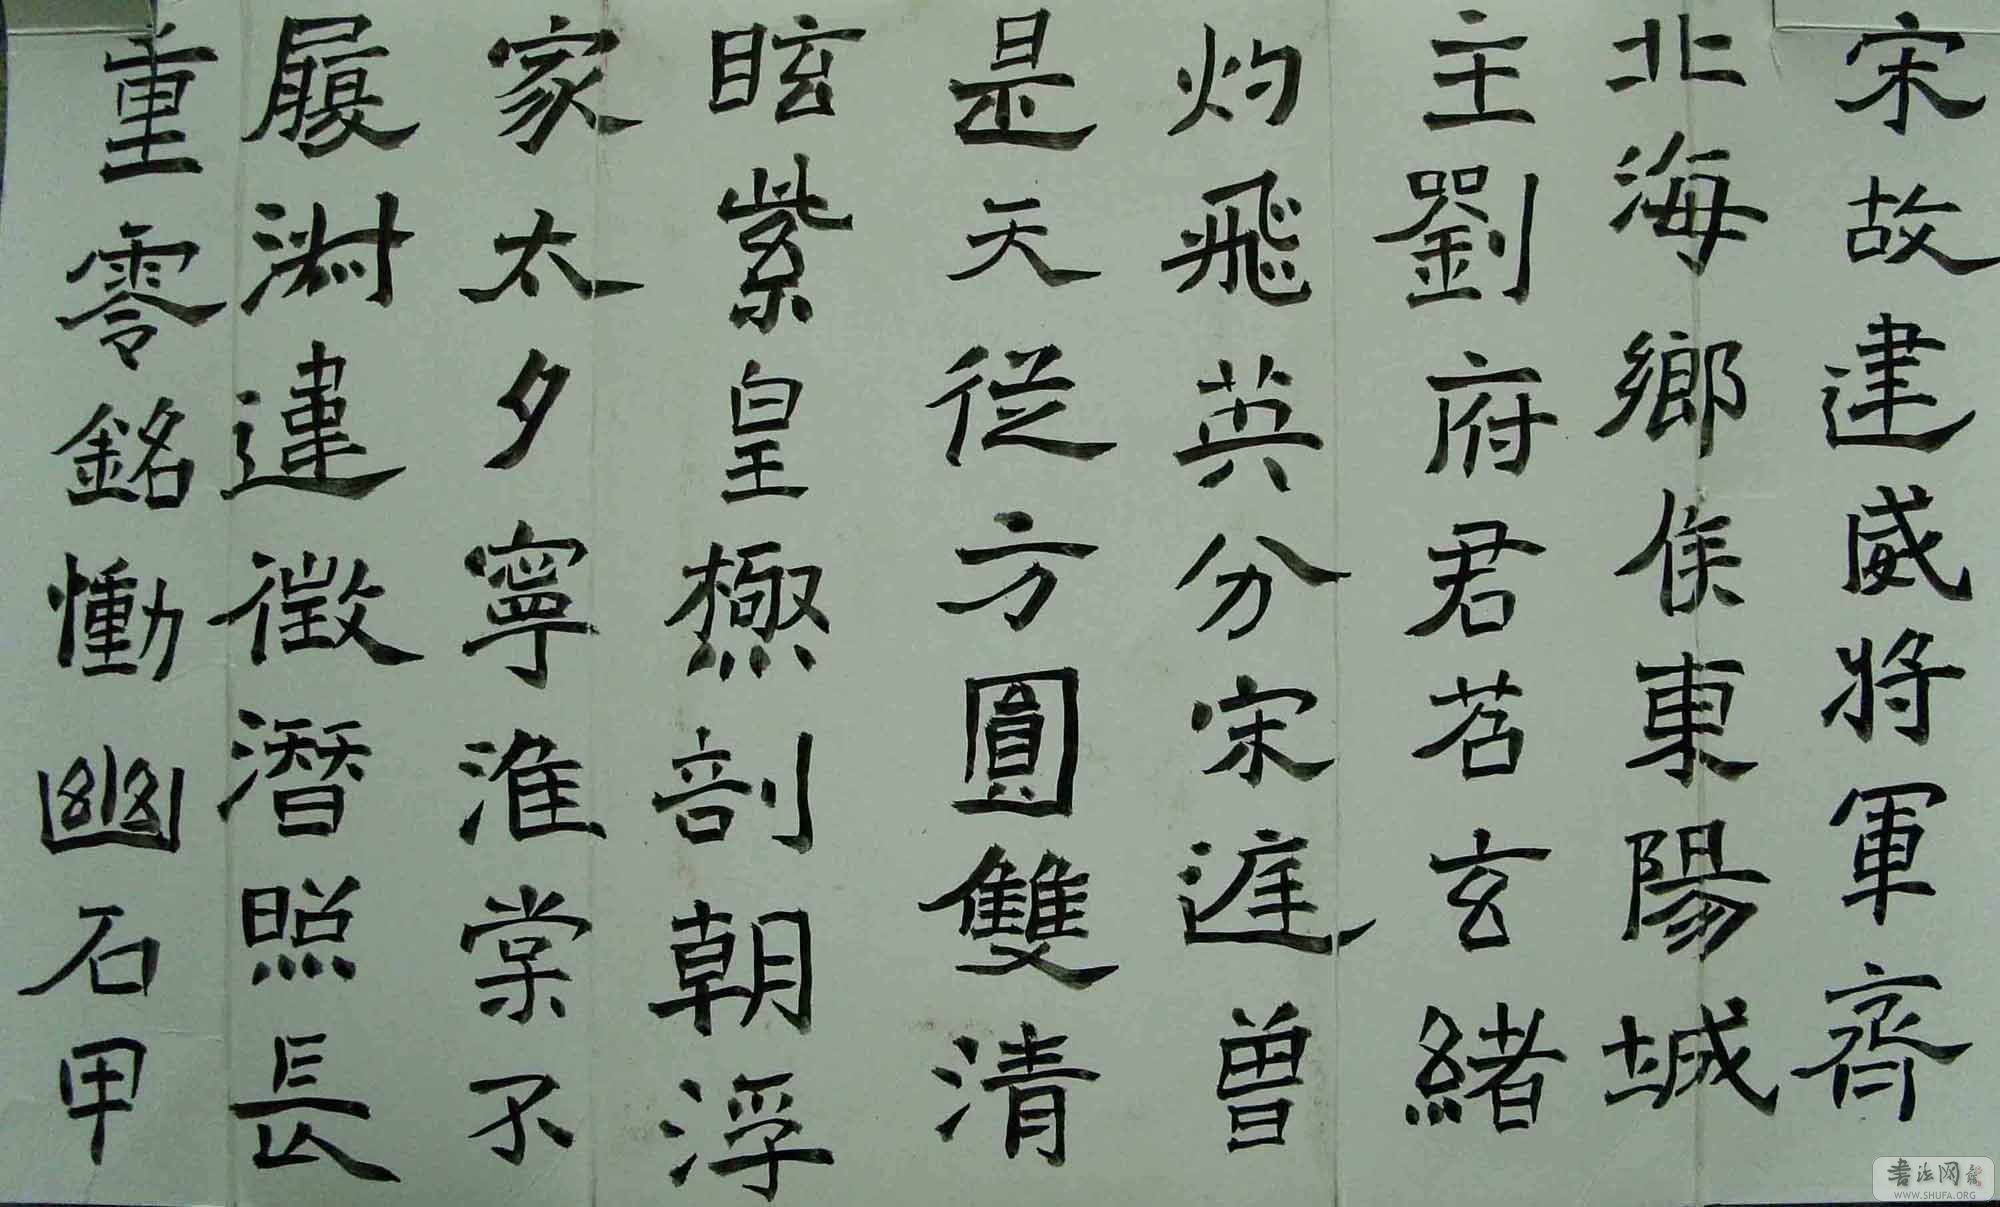 宋故建威将軍齊
北海鄉侯東陽城
主劉府君苕玄緒
灼飛英分宋遊曾
是天從方圓雙清
眩紫皇極剖朝浮
家太夕寧淮棠不
履渊違徵潛照長
重零銘慟幽石甲
書法网
WWW.SHUFA.ORG